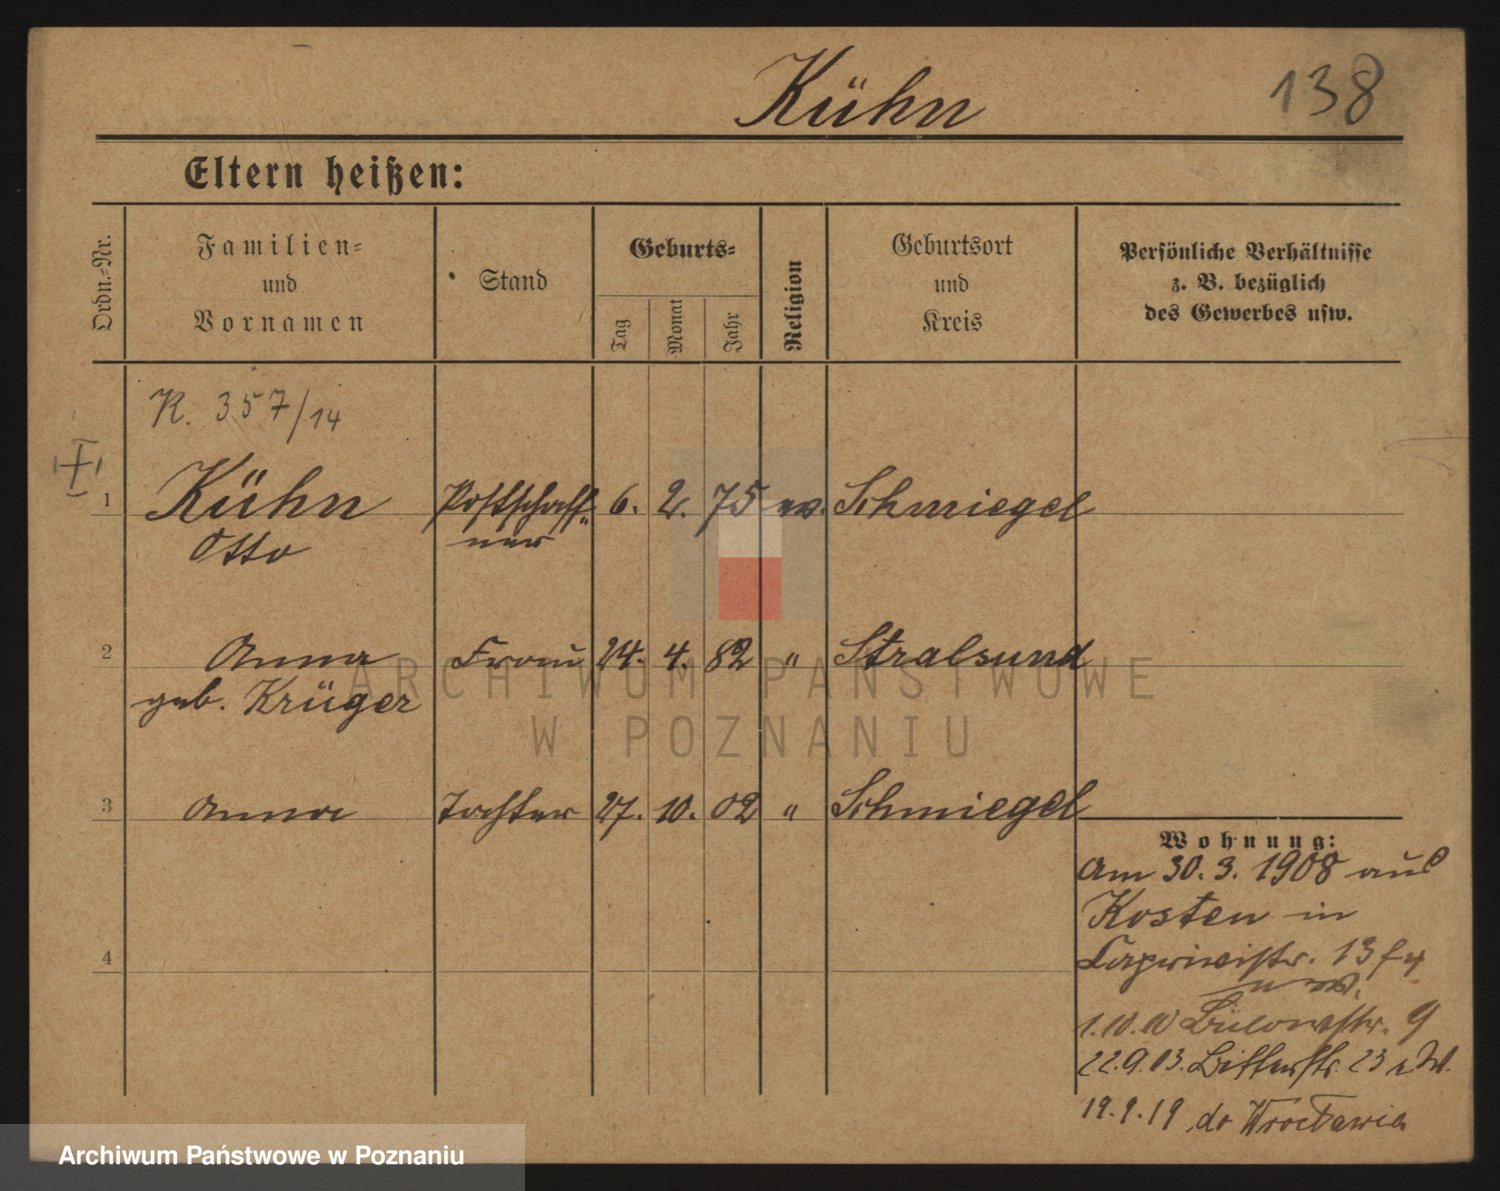 Kühn
138
Eltern heißen:
Ordn.-Nr.
Familien-
und
Vornamen
Stand
Geburts-
Tag
Monat
Jahr
Religion
Geburtsort
und
Kreis
Persönliche Verhältnisse
z. B. bezüglich
des Gewerbes usw.
K. 357/14
1 Kühn Postschaff- 6. 2. 75 ev. Schmiegel
Otto ner
2 Anna Frau 24. 4. 82 " Stralsund
geb. Krüger
3 Anna Tochter 27. 10. 02 " Schmiegel
4
Wohnung:
Am 30.3.1908 aus
Kosten in
Caprivistr. 13
1.10.10 Bülowstr. 9
22.9.13. Bitterstr. 23
19.9.19 do Wrocławia
ARCHIWUM PAŃSTWOWE
W POZNANIU
Archiwum Państwowe w Poznaniu